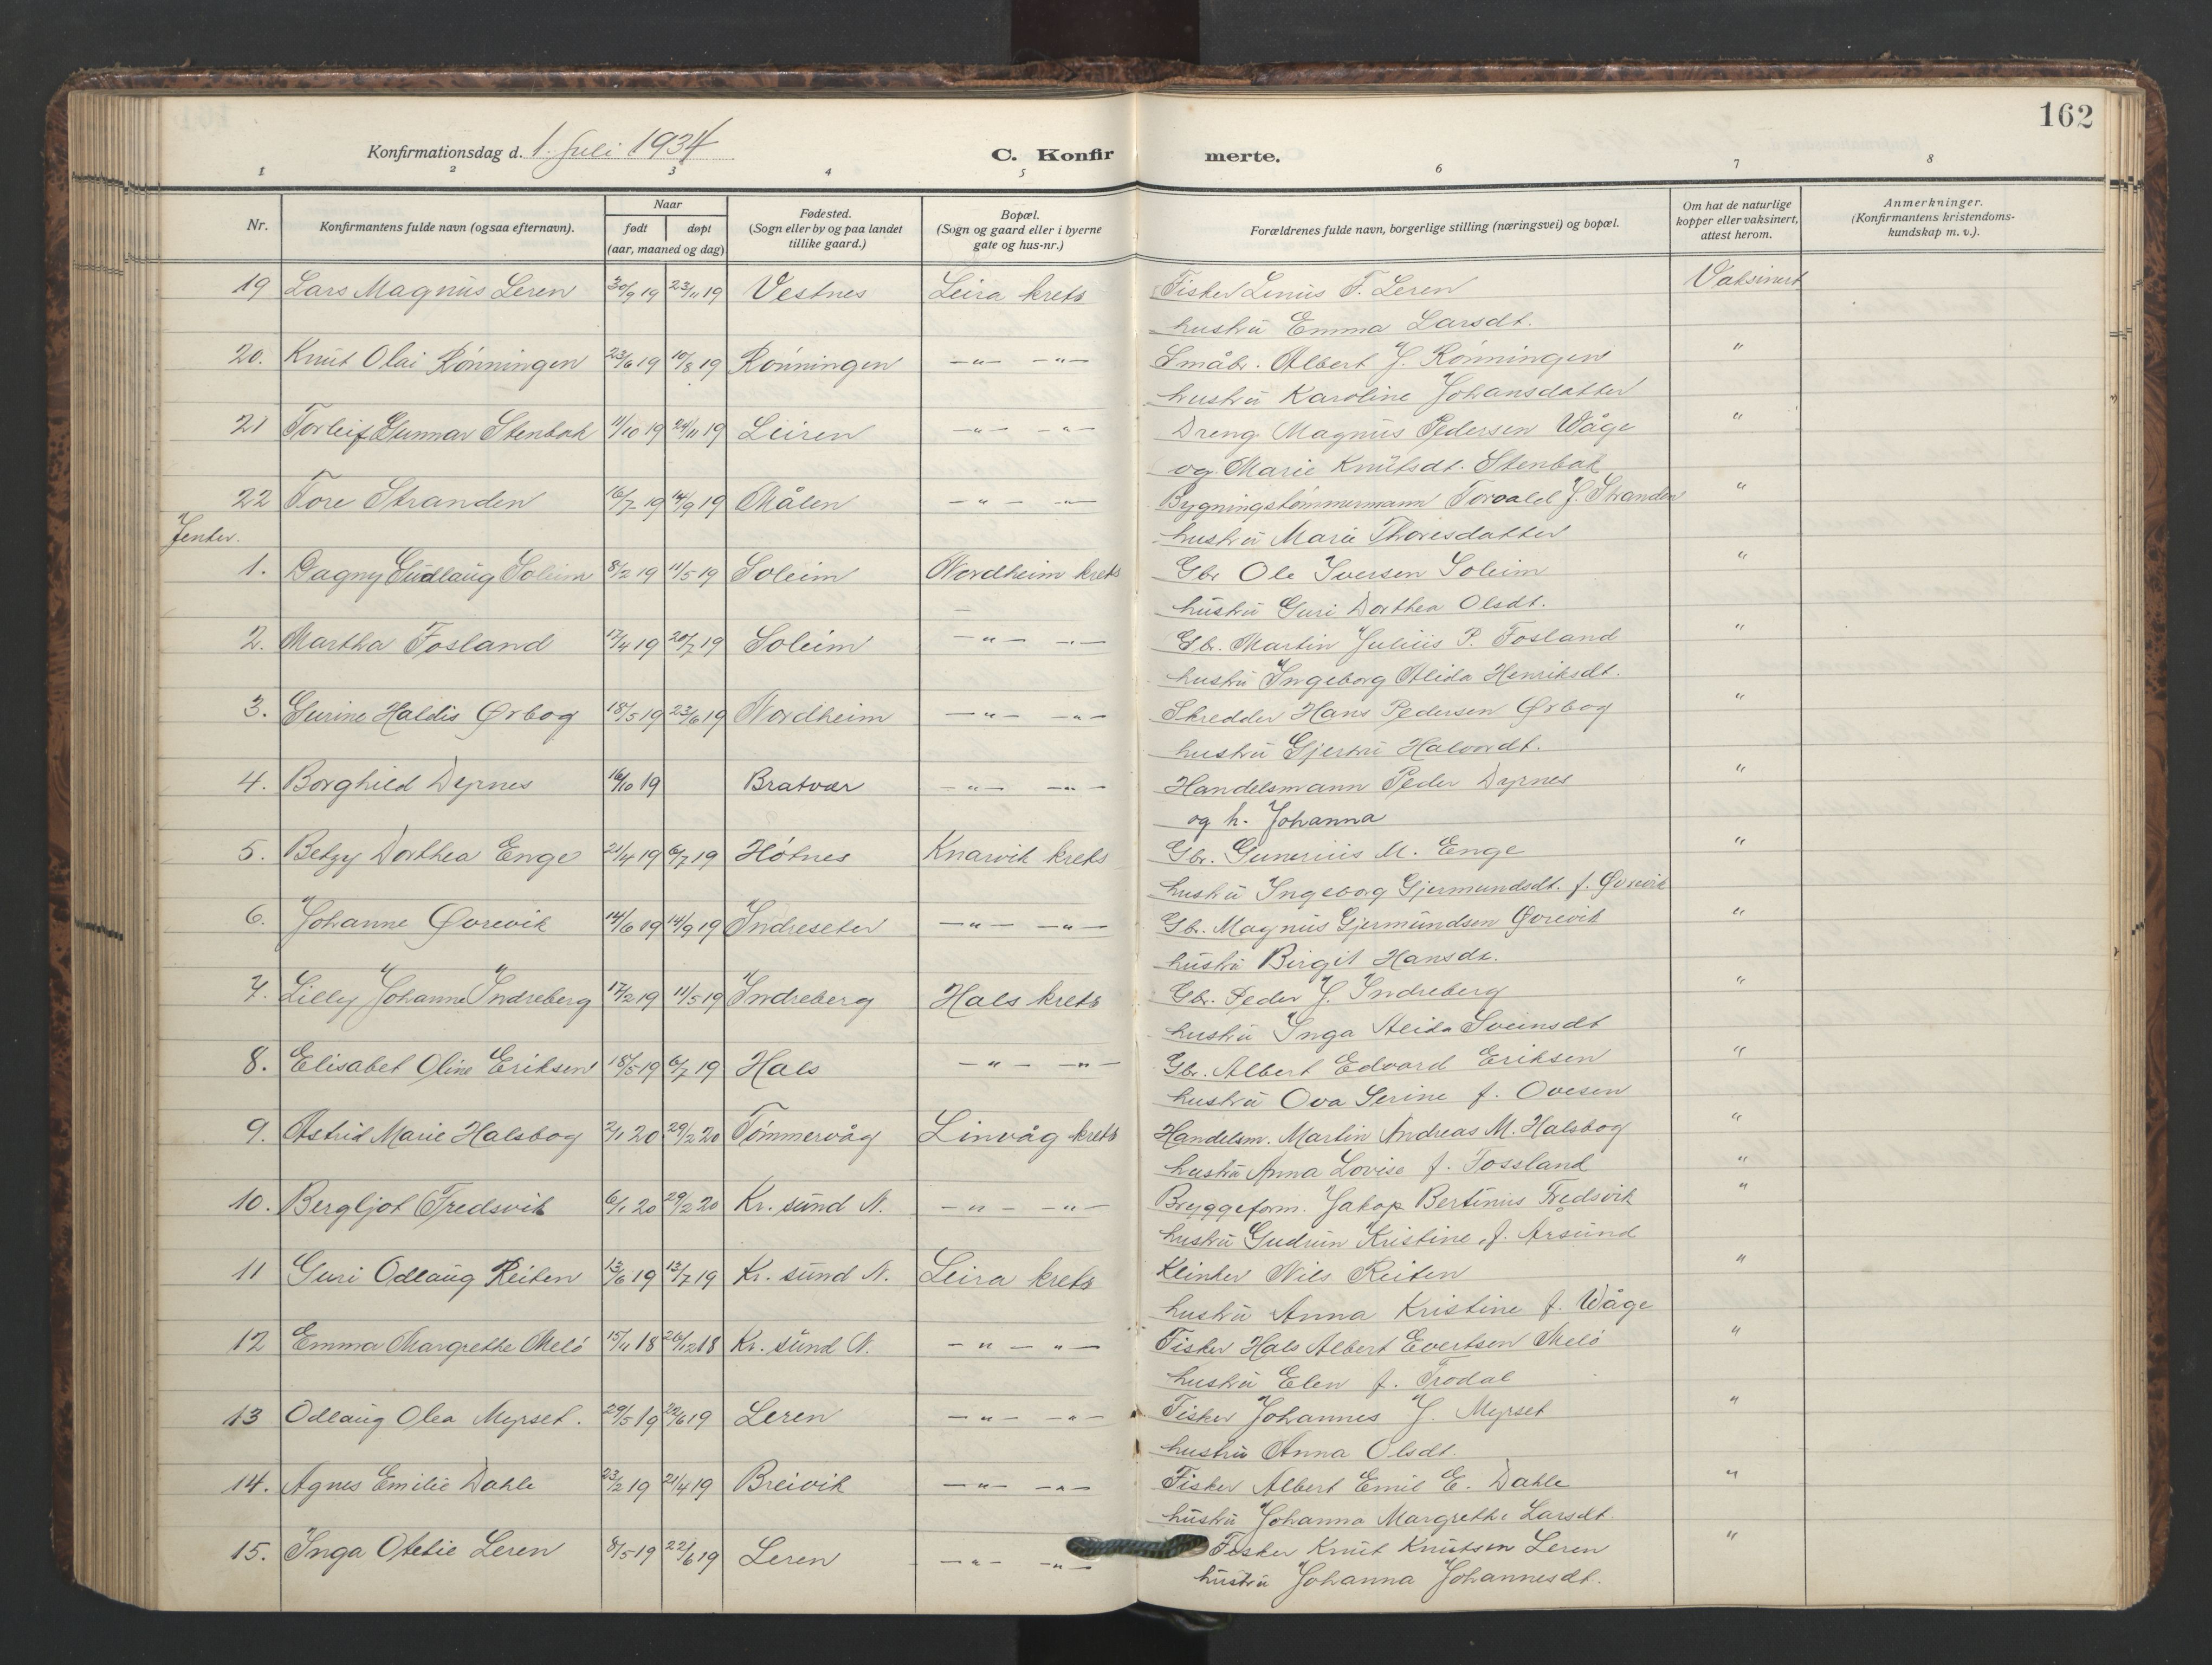 162
Konfirmationsdag d. 1. Juli 1934
C. Konfirmerte.
1 2 3 4 5 6 7 8
Nr.
Konfirmantens fulde navn (ogsaa efternavn).
Naar
født
døpt
(aar, maaned og dag)
Fødested.
(Sogn eller by og paa landet
tillike gaard.)
Bopæl.
(Sogn og gaard eller i byerne
gate og hus-nr.)
Forældrenes fulde navn, borgerlige stilling (næringsvei) og bopæl.
Om hat de naturlige
kopper eller vaksinert,
attest herom.
Anmerkninger.
(Konfirmantens kristendoms-
kundskap m. v.).
19 Lars Magnus Leren 30/9 19 23/11 19 Vestnes Leira krets Fisker Linus F. Leren Vaksinert
hustru Emma Larsdt.
20. Knut Olai Rönningen 23/6 19 10/8 19 Rönningen — " — — " — Småbr. Albert J. Rönningen "
hustru Karoline Johansdatter
21 Torleif Gunnar Stenbak 11/10 19 24/11 19 Leiren — " — — " — Dreng Magnus Pedersen Wåge "
og Marie Knutsdt. Stenbak
22 Tore Stranden 16/7 19 14/9 19 Målen — " — — " — Bygningstömmermann Torvald J. Stranden "
hustru Marie Thoresdatter
Jenter.
1. Dagny Gudlaug Soleim 8/2 19 11/5 19 Soleim Nordheim krets Gbr Ole Iversen Soleim "
hustru Guri Dorthea Olsdt.
2. Martha Fosland 17/4 19 20/7 19 Soleim — " — — " — Gb. Martin Julius P. Fosland "
hustru Ingeborg Alida Henriksdt.
3. Gurine Haldis Ørbog 18/5 19 23/6 19 Nordheim — " — — " — Skredder Hans Pedersen Ørbog "
hustru Gjertru Halvordt.
4. Borghild Dyrnes 16/10 19 Bratvær — " — — " — Handelsmann Peder Dyrnes "
og h. Johanna
5. Betzy Dorthea Enge 21/4 19 6/7 19 Hötnes Knarvik krets Gbr. Gunerius M. Enge "
hustru Ingeborg Gjermundsdt. f. Øvrevik
6. Johanne Øvrevik 14/6 19 14/9 19 Indreseter — " — — " — Gb. Magnus Gjermundsen Øvrevik "
hustru Birgit Hansdt.
7. Lilly Johanne Indreberg 17/2 19 11/5 19 Indreberg Hals krets Gbr. Peder J. Indreberg "
hustru Inga Alida Sveinsdt
8. Elisabet Oline Eriksen 18/5 19 6/7 19 Hals — " — — " — Gbr. Albert Edvard Eriksen "
hustru Ova Serine f. Ovesen
9. Astrid Marie Halsbog 2/1 20 29/2 20 Tömmervåg Linvåg krets Handelsm. Martin Andreas M. Halsbog "
hustru Anna Lovise f. Fossland "
10. Bergljot Fredsvik 6/1 20 29/2 20 Kr. sund N. — " — — " — Bryggeform. Jakop Bertinus Fredsvik "
hustru Gudrun Kristine f. Årsund
11 Guri Odlaug Reiten 13/6 19 13/7 19 Kr. sund N. Leira krets Klinker Nils Reiten "
hustru Anna Kristine f. Wåge
12 Emma Margrethe Melö 15/11 18 26/12 18 Kr. sund N. — " — " — Fisker Hals Albert Evertsen Melö "
hustru Elen f. Trodal
13 Odlaug Olea Myrset. 29/5 19 22/6 19 Leren — " — — " — Fisker Johannes J. Myrset "
hustru Anna Olsdt.
14. Agnes Emilie Dahle 23/2 19 21/4 19 Breivik — " — — " — Fisker Albert Emil E. Dahle "
hustru Johanna Margrethe Larsdt.
15. Inga Otetie Leren 8/5 19 22/6 19 Leren — " — — " — Fisker Knut Knutsen Leren "
hustru Johanna Johannesdt.